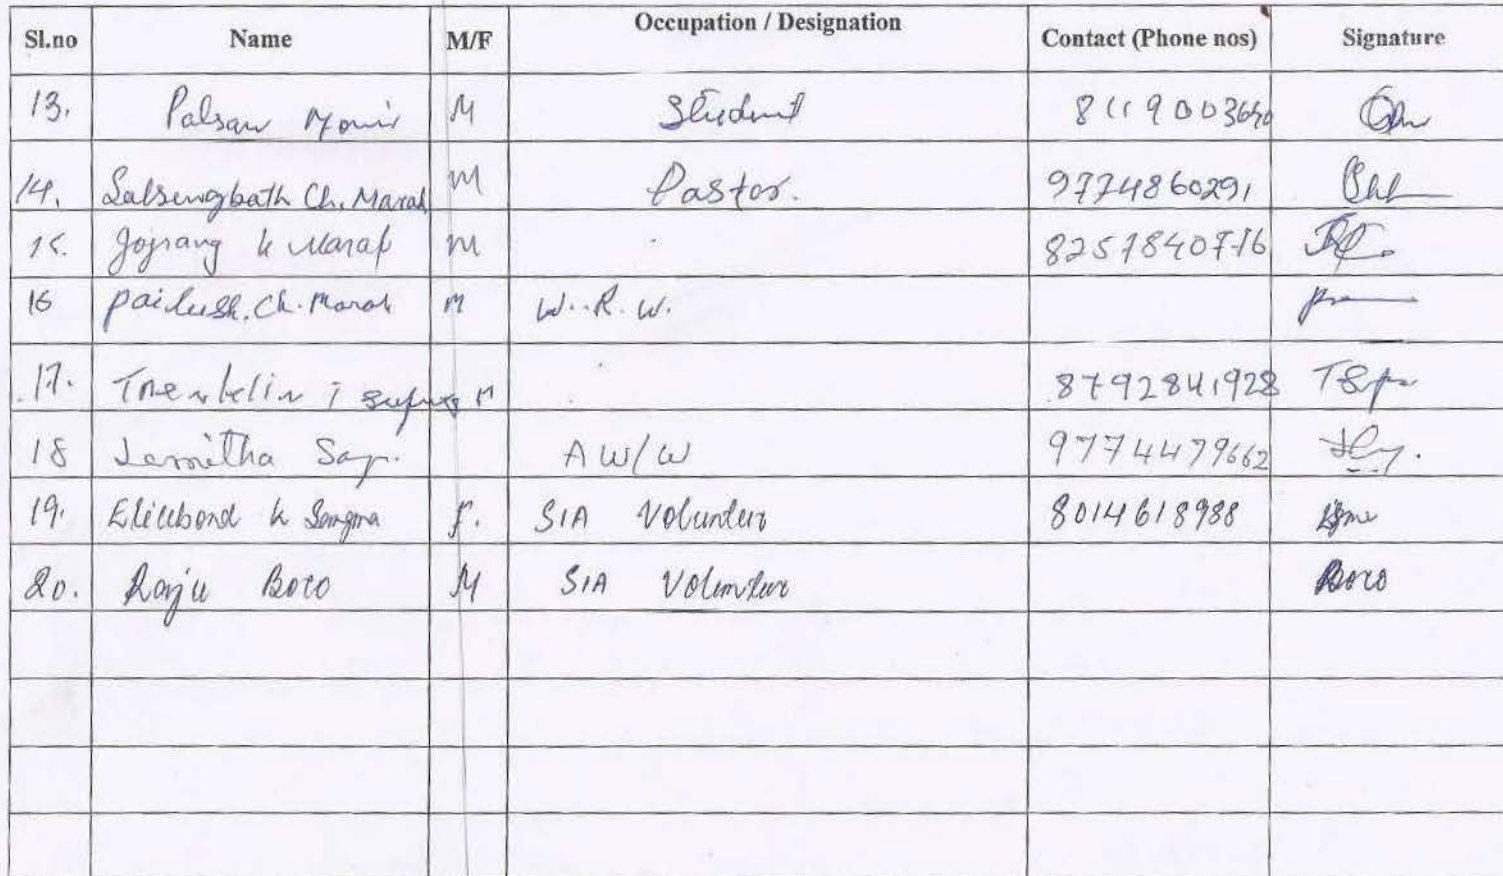 Sl.no Name M/F Occupation / Designation Contact (Phone nos) Signature
13. Palsan Momin M Student 8119003640
14. Salsengbath Ch. Marak M Pastor. 9774860291
15. Jojrang k Marak M
16 Ch. Marak M W.R.W.
17. M 8792841928
18 AW/W 9774479662
19. k Sangma F. SIA Volunteer 8014618988
20. Raju Boro M SIA Volunteer Boro